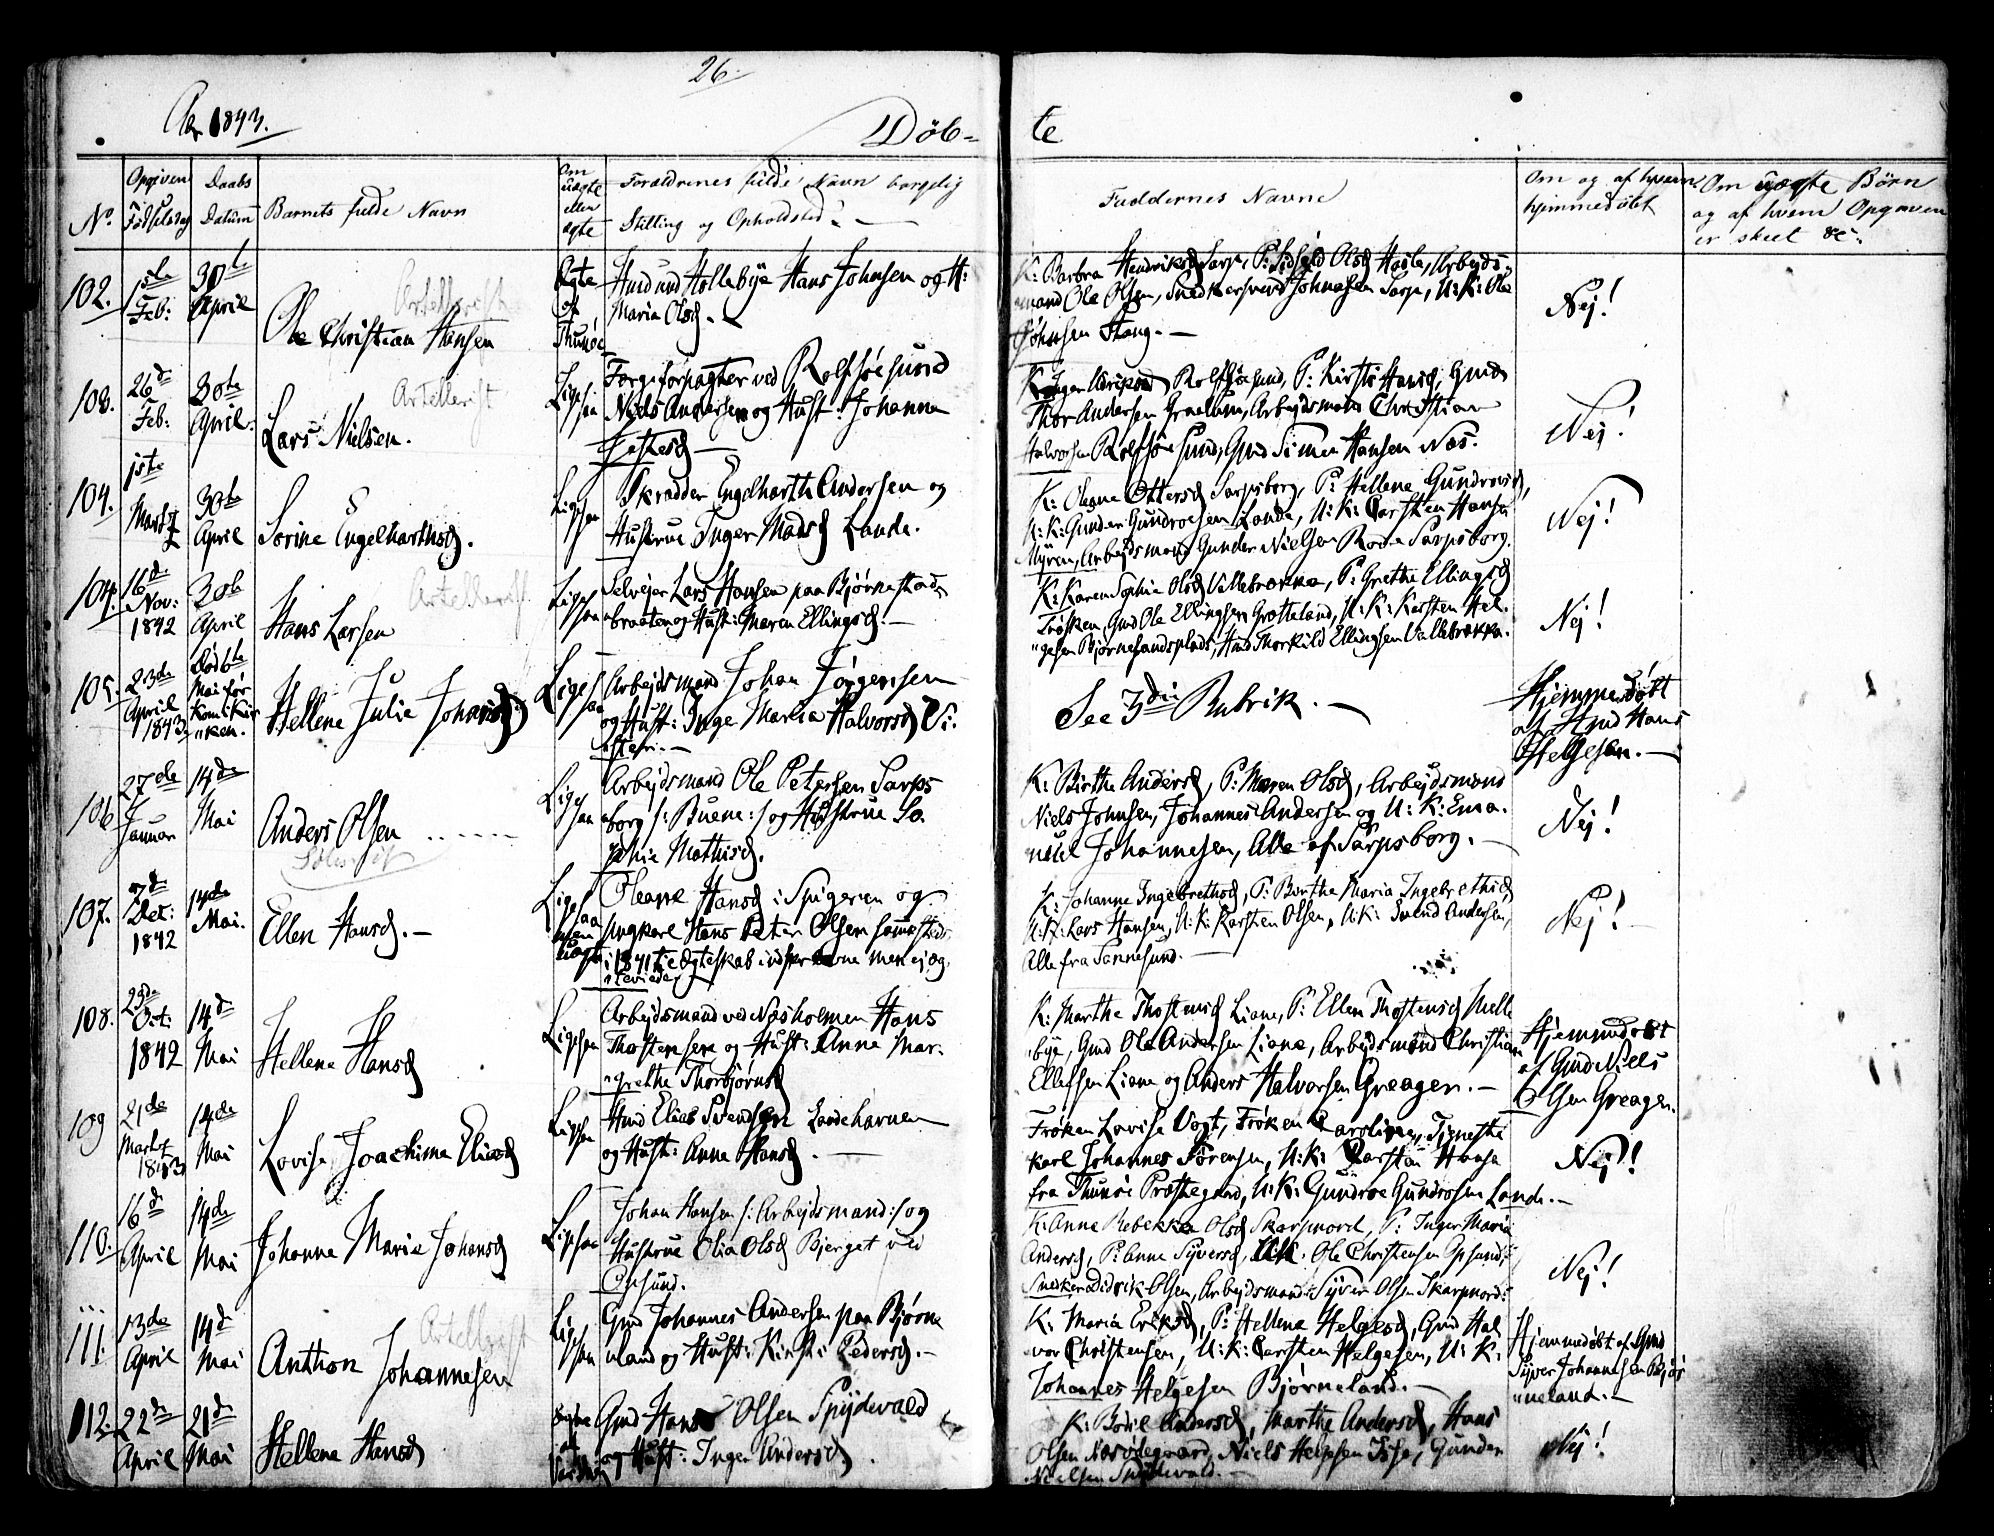 26.
Aar 1843.
Döb-
te
No.
Opgiven Födselsdag
Daabs Datum
Barnets fulde Navn
Om uægte eller ægte
Forældrenes fulde Navn borgelig Stilling og Opholdsted
Faddernes Navne
Om og af hvem hjemmedöbt
Om uægte Börn og af hvem Opgaven er skeet &c.
102.
1ste Feb:
30te April
Ole Christian Hansen
Ægte af Thunöe
Huusmand Hollebye Hans Johnsen og H:
Maria Olsd.
K: Barbra Hendriksd Sarp, P: Olsd Hasle, Arbejds-
mand Ole Olsen, Snedkersvend Johnesen Sarp, U: K: Ole
Johnsen Stang.
Nej!
103.
26de Feb:
30te April
Lars Nielsen.
Ligesaa
Færgeforpagter ved Rolfsöesund
Niels Andersen og Hust: Johanne
K: Inger Rolfsöesund, P: Kirsti Hansd, Gmd
Thor Andersen Graelum, Arbejdsmand Christian
Halvorsen Rolfsöe Sund, Gmd Simen Hansen Næs.
Nej!
104.
1ste Marts
30te April
Sorine Engelharthsd.
Ligesaa
Skrædder Engelharth Andersen og
Hustrue Inger Madsd Lande.
K: Olegne Ottersd Sarpsborg, P: Hellene Gundrosd,
U: K: Gunder Gundroesen Lande, U: K: Carsten Hansen
Myren, Arbejdsmand Gunder Nielsen Sarpsborg.
Nej!
104.
16de Nov: 1842
30te April
Hans Larsen
Ligesaa
Selvejer Lars Hansen paa Bjørnestad-
braaten og Hust: Maren Ellingsd.
K: Karen Sophie Olsd Vallebrække, P: Grethe Ellingsd
Gmd Ole Ellingsen Grotteland, U: K: Karsten Hel-
gesen Bjørnelandsplads, Hmd Thorkild Ellingsen Vallebrække.
Nej!
105.
23de April 1843
Död 6te Mai för kom: t: Kirken.
Hellene Julie Johansd
Ligesaa
Arbejdsmand Johan Jörgensen
og Hust: Inge Maria Halvorsd Vi-
ster.
See 3die Rubrik.
Hjemmedöbt
af Hmd Hans
Helgesen.
106
27de Januar
14de Mai
Anders Olsen
Ligesaa
Arbejdsmand Ole Petersen Sarps-
borg /: Buene :/ og Hustrue So-
phie Mathisd.
K: Birthe Andersd, P: Maren Olsd, Arbejdsmand
Niels Johnsen, Johannes Andersen og U: K: Ema-
nuel Johannesen, Alle af Sarpsborg.
Nej!
107.
7de Dec: 1842
14de Mai.
Ellen Hansd.
Ligesaa men uægte
Oleane Hansd i Spigeren og
Ungkarl Hans Peter Olsen sammesteds
K: Johanne Ingebrethsd, P: Berthe Maria Ingebrethsd,
U: K: Lars Hansen, U: K: Karsten Olsen, U: K: Svend Andersen,
Alle fra Sannesund.
Nej!
108.
23de Oct: 1842
14de Mai
Hellene Hansd
Ligesaa
Arbejdsmand ved Næsholmen Hans
Thostensen og Hust: Anne Mar-
grethe Thorbjørnsd
K: Marthe Thostensd Liane, P: Ellen Thostensd Helle-
bye, Gmd Ole Andersen Liane, Arbejdsmand Christian
Ellefsen Liane og Anders Halvorsen Greager.
Hjemmedöbt
af Gmd Niels
Olsen Greager.
109
21de Marts 1843
14de Mai
Lovise Joachime Eliasd
Ligesaa
Hmd Elias Svendsen Landehavnen
og Hust: Anne Hansd.
Fröken Lovise Vogt, Fröken Caroline, Tjeneste-
karl Johannes Sörensen, U: K: Carsten Hansen
fra Thunöe Præstegaard, U: K: Gundroe Gundrosen Lande.
Nej!
110.
16de April
14de Mai
Johanne Marie Johansd
Ligesaa
Johan Hansen /: Arbejdsmand :/ og
Hustrue Olia Olsd Bjerget ved
Opsund.
K: Anne Rebekka Olsd Skarpnord, P: Inger Maria
Andersd, P: Anne Syversd, U: K: Ole Christensen Opsund,
Snedker Didrik Olsen, Arbejdsmand Syver Olsen Skarpnord:
Nej!
111.
13de April
14de Mai
Anthon Johannesen
Ligesaa
Gmd Johannes Andersen paa Bjørne-
land og Hust: Kirsti Pedersd.
K: Maria Eriksd, P: Hellene Helgesd, Gmd Hal-
vor Christensen, U: K: Carsten Helgesen, U: K:
Johannes Helgesen Bjørneland.
Hjemmedöbt af Gmd
Syver Johannesen Bjør-
neland.
112.
22de April
21de Mai
Hellene Hansd
Ægte
Gmd Hans Olsen Spydevold
og Hust: Inger Andersd.
K: Bodil Andersd, Marthe Andersd, Hans
Olsen Næsødegaard, Niels Helgesen Gunder
Nielsen Spydevold.
Nej!